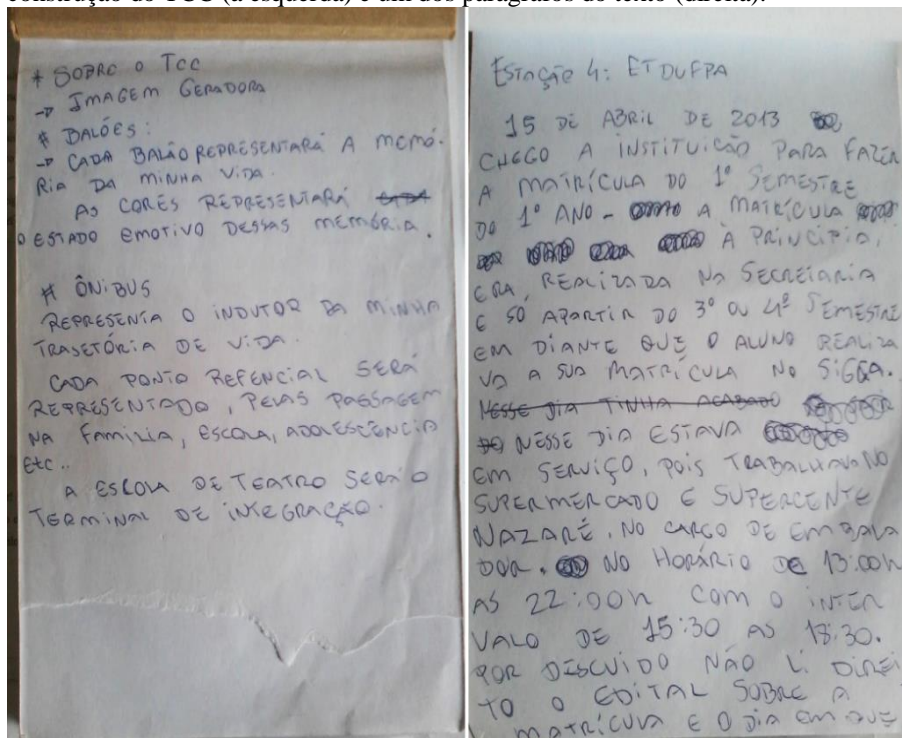 construção do TCC (à esquerda) e um dos parágrafos do texto (direita).
* SOBRE O TCC
→ IMAGEM GERADORA
# BALÕES:
→ CADA BALÃO REPRESENTARÁ A MEMÓ-
RIA DA MINHA VIDA.
AS CORES REPRESENTARÁ
O ESTADO EMOTIVO DESSAS MEMÓRIA.
# ÔNIBUS
REPRESENTA O INDUTOR DA MINHA
TRASETÓRIA DE VIDA.
CADA PONTO REFENCIAL SERÁ
REPRESENTADO, PELAS PASSAGEM
NA FAMILIA, ESCOLA, ADOLESCÊNCIA
Etc..
A ESCOLA DE TEATRO SERÁ O
TERMINAL DE INTEGRAÇÃO.
ESTAÇÃO 4: ETDUFPA
15 DE ABRIL DE 2013
CHEGO A INSTITUIÇÃO PARA FAZER
A MATRÍCULA DO 1º SEMESTRE
DO 1º ANO - A MATRÍCULA
À PRINCÍPIO,
ERA, REALIZADA NA SECRETARIA
E SÓ APARTIR DO 3º OU 4º SEMESTRE
EM DIANTE QUE O ALUNO REALIZA
VA A SUA MATRÍCULA NO SIGGA.
NESSE DIA TINHA ACABADO
DO NESSE DIA ESTAVA
EM SERVIÇO, POIS TRABALHAVA NO
SUPERMERCADO E SUPERCENTE
NAZARÉ. NO CARGO DE EMBALA
DOR. NO HORÁRIO DE 13:00h
AS 22:00h COM O INTER
VALO DE 15:30 AS 18:30.
POR DESCUIDO NÃO LI DIREI
TO O EDITAL SOBRE A
MATRÍCULA E O DIA EM QUE